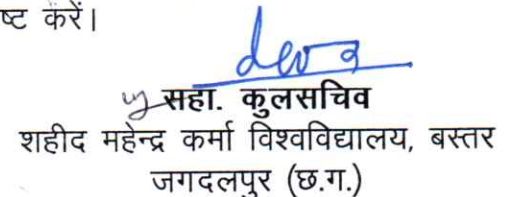 ष्ट करें।
सहा. कुलसचिव
शहीद महेन्द्र कर्मा विश्वविद्यालय, बस्तर
जगदलपुर (छ.ग.)